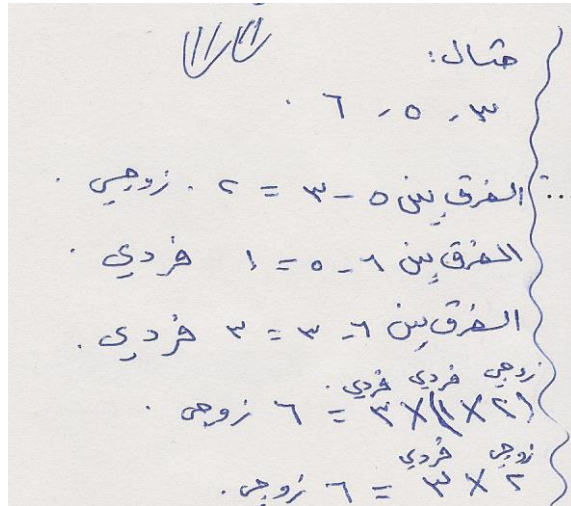 مثال:
٣ , ٥ , ٦ .
∴ الفرق بين ٥ - ٣ = ٢ . زوجي .
الفرق بين ٦ - ٥ = ١ فردي .
الفرق بين ٦ - ٣ = ٣ فردي .
زوجي فردي فردي
(٢ × ١) × ٣ = ٦ زوجي .
زوجي فردي
٢ × ٣ = ٦ زوجي .